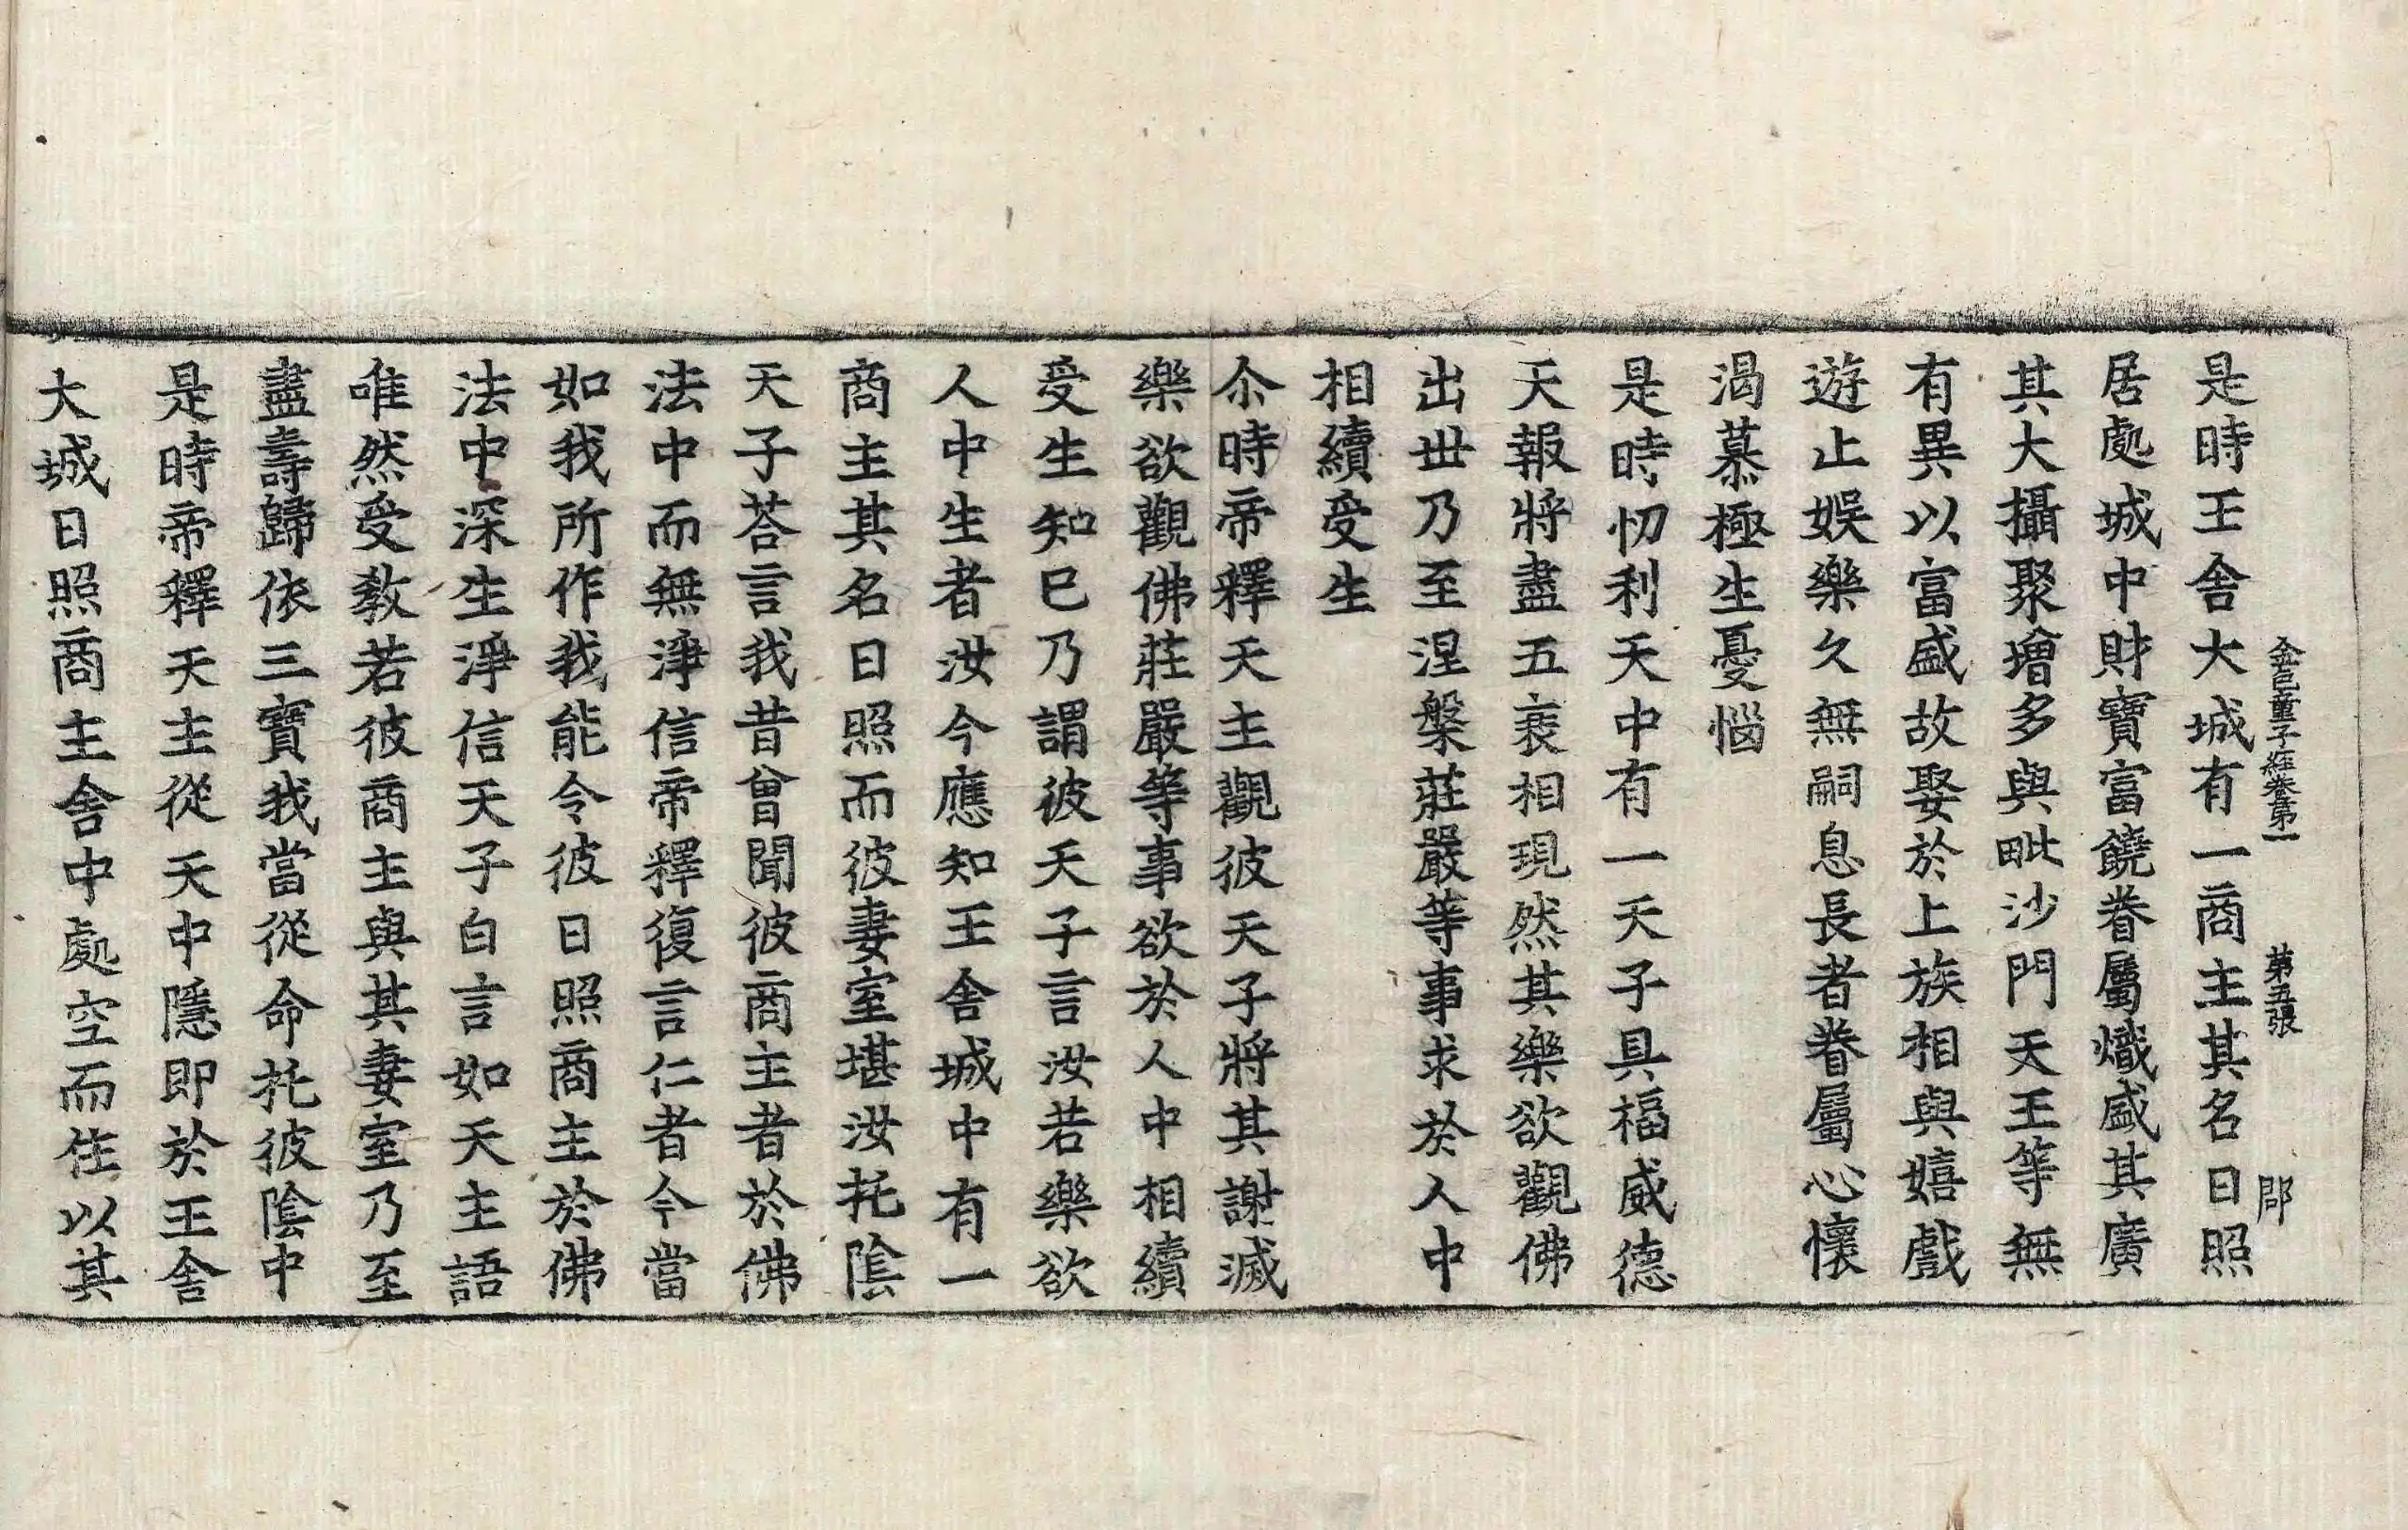 金色童子經卷第一 第五張 郡
是時王舍大城有一商主其名日照
居處城中財寶富饒眷屬熾盛其廣
其大攝聚增多與毗沙門天王等無
有異以富盛故娶於上族相與嬉戲
遊止娛樂久無嗣息長者眷屬心懷
渴慕極生憂惱
是時忉利天中有一天子具福威德
天報將盡五衰相現然其樂欲觀佛
出丗乃至涅槃莊嚴等事求於人中
相續受生
尒時帝釋天主觀彼天子將其謝滅
樂欲觀佛莊嚴等事欲於人中相續
受生知已乃謂彼天子言汝若樂欲
人中生者汝今應知王舍城中有一
商主其名日照而彼妻室堪汝托陰
天子荅言我昔曾聞彼商主者於佛
法中而無淨信帝釋復言仁者今當
如我所作我能令彼日照商主於佛
法中深生淨信天子白言如天主語
唯然受教若彼商主與其妻室乃至
盡壽歸依三寶我當從命托彼陰中
是時帝釋天主從天中隱即於王舍
大城日照商主舍中處空而住以其